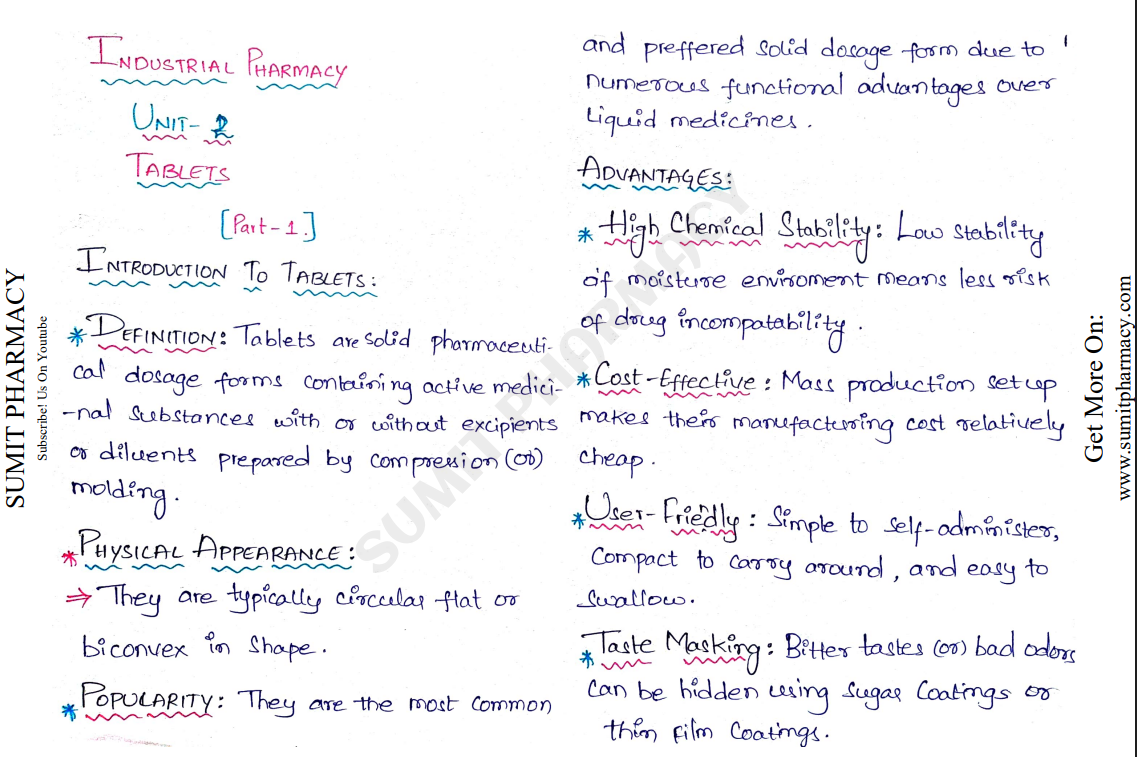 INDUSTRIAL PHARMACY
UNIT- 2
TABLETS
[Part-1.]
INTRODUCTION TO TABLETS:
* DEFINITION: Tablets are solid pharmaceuti-
cal dosage forms containing active medici-
-nal substances with or without excipients
or diluents prepared by compression (or)
molding.
* PHYSICAL APPEARANCE:
⇒ They are typically circular flat or
biconvex in shape.
* POPULARITY: They are the most common
and preffered solid dosage form due to
numerous functional advantages over
liquid medicines.
ADVANTAGES:
* High Chemical Stability: Low stability
of moisture enviroment means less risk
of drug incompatability.
* Cost-Effective: Mass production set up
makes their manufacturing cost relatively
cheap.
* User-Friendly: Simple to self-administer,
compact to carry around, and easy to
swallow.
* Taste Masking: Bitter tastes (or) bad odors
can be hidden using sugar coatings or
thin film coatings.
SUMIT PHARMACY
Subscribe! Us On Youtube
SUMIT PHARMACY
Get More On:
www.sumitpharmacy.com